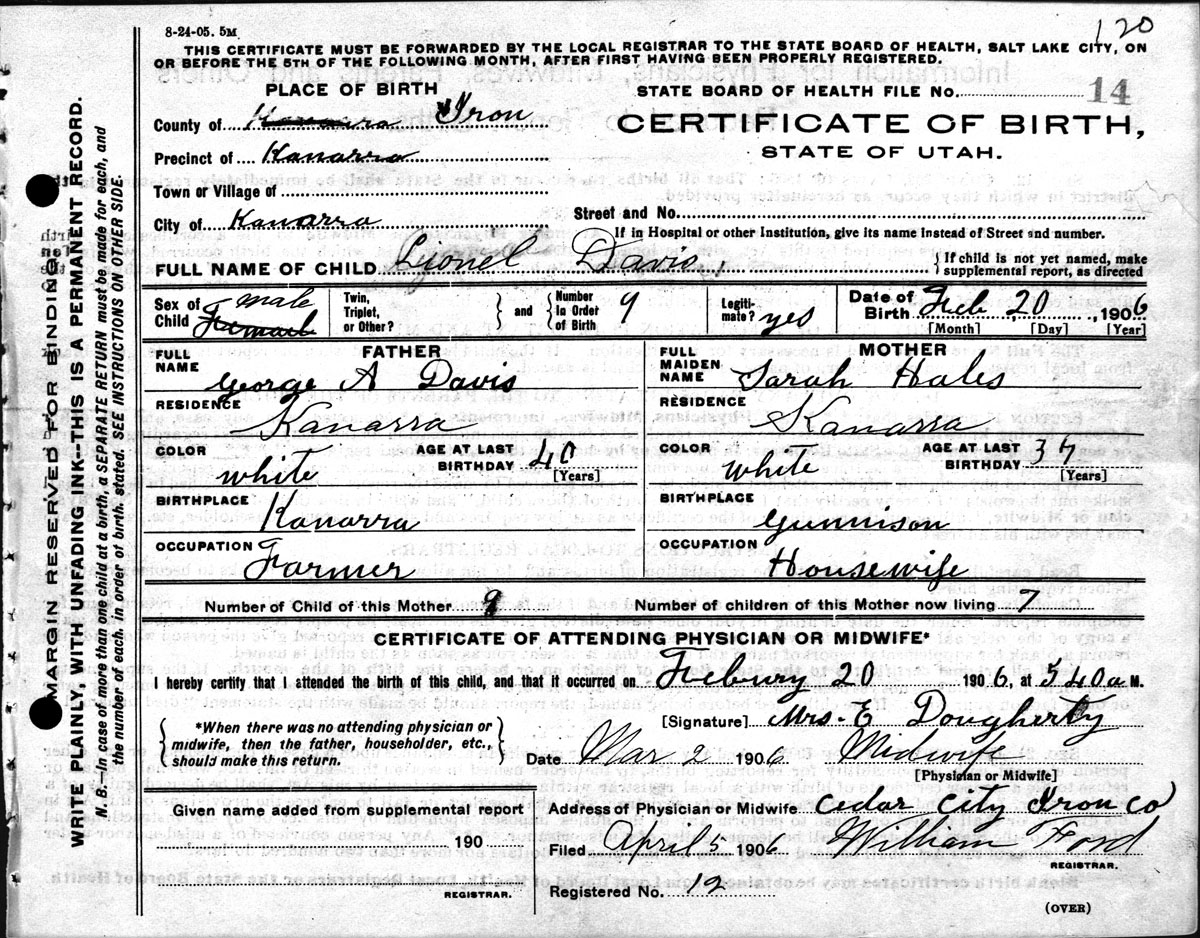 8-24-05. 5M
120
THIS CERTIFICATE MUST BE FORWARDED BY THE LOCAL REGISTRAR TO THE STATE BOARD OF HEALTH, SALT LAKE CITY, ON
OR BEFORE THE 5TH OF THE FOLLOWING MONTH, AFTER FIRST HAVING BEEN PROPERLY REGISTERED.
PLACE OF BIRTH
STATE BOARD OF HEALTH FILE No. 14
County of Kanarra Iron
CERTIFICATE OF BIRTH,
STATE OF UTAH.
Precinct of Kanarra
Town or Village of
City of Kanarra
Street and No.
If in Hospital or other Institution, give its name instead of Street and number.
FULL NAME OF CHILD. Lionel Davis
{If child is not yet named, make
supplemental report, as directed
Sex of Child male Femail
Twin, Triplet, or Other? } and { Number in Order of Birth 9
Legitimate? yes
Date of Birth Feb 20, 1906
[Month] [Day] [Year]
FATHER
FULL NAME George A Davis
RESIDENCE Kanarra
COLOR white
AGE AT LAST BIRTHDAY 40 [Years]
BIRTHPLACE Kanarra
OCCUPATION Farmer
MOTHER
FULL MAIDEN NAME Sarah Hales
RESIDENCE Kanarra
COLOR White
AGE AT LAST BIRTHDAY 37 [Years]
BIRTHPLACE Gunnison
OCCUPATION Housewife
Number of Child of this Mother 9
Number of children of this Mother now living 7
CERTIFICATE OF ATTENDING PHYSICIAN OR MIDWIFE*
I hereby certify that I attended the birth of this child, and that it occurred on Febury 20 1906, at 540 a M.
{*When there was no attending physician or
midwife, then the father, householder, etc.,
should make this return.}
[Signature] Mrs. E Dougherty
Date Mar 2 1906 Midwife
[Physician or Midwife]
Given name added from supplemental report
190
REGISTRAR.
Address of Physician or Midwife Cedar City Iron Co
Filed April 5 1906 William Ford
REGISTRAR.
Registered No. 12
(OVER)
MARGIN RESERVED FOR BINDING.
WRITE PLAINLY, WITH UNFADING INK--THIS IS A PERMANENT RECORD.
N. B.—In case of more than one child at a birth, a SEPARATE RETURN must be made for each, and
the number of each, in order of birth, stated. SEE INSTRUCTIONS ON OTHER SIDE.